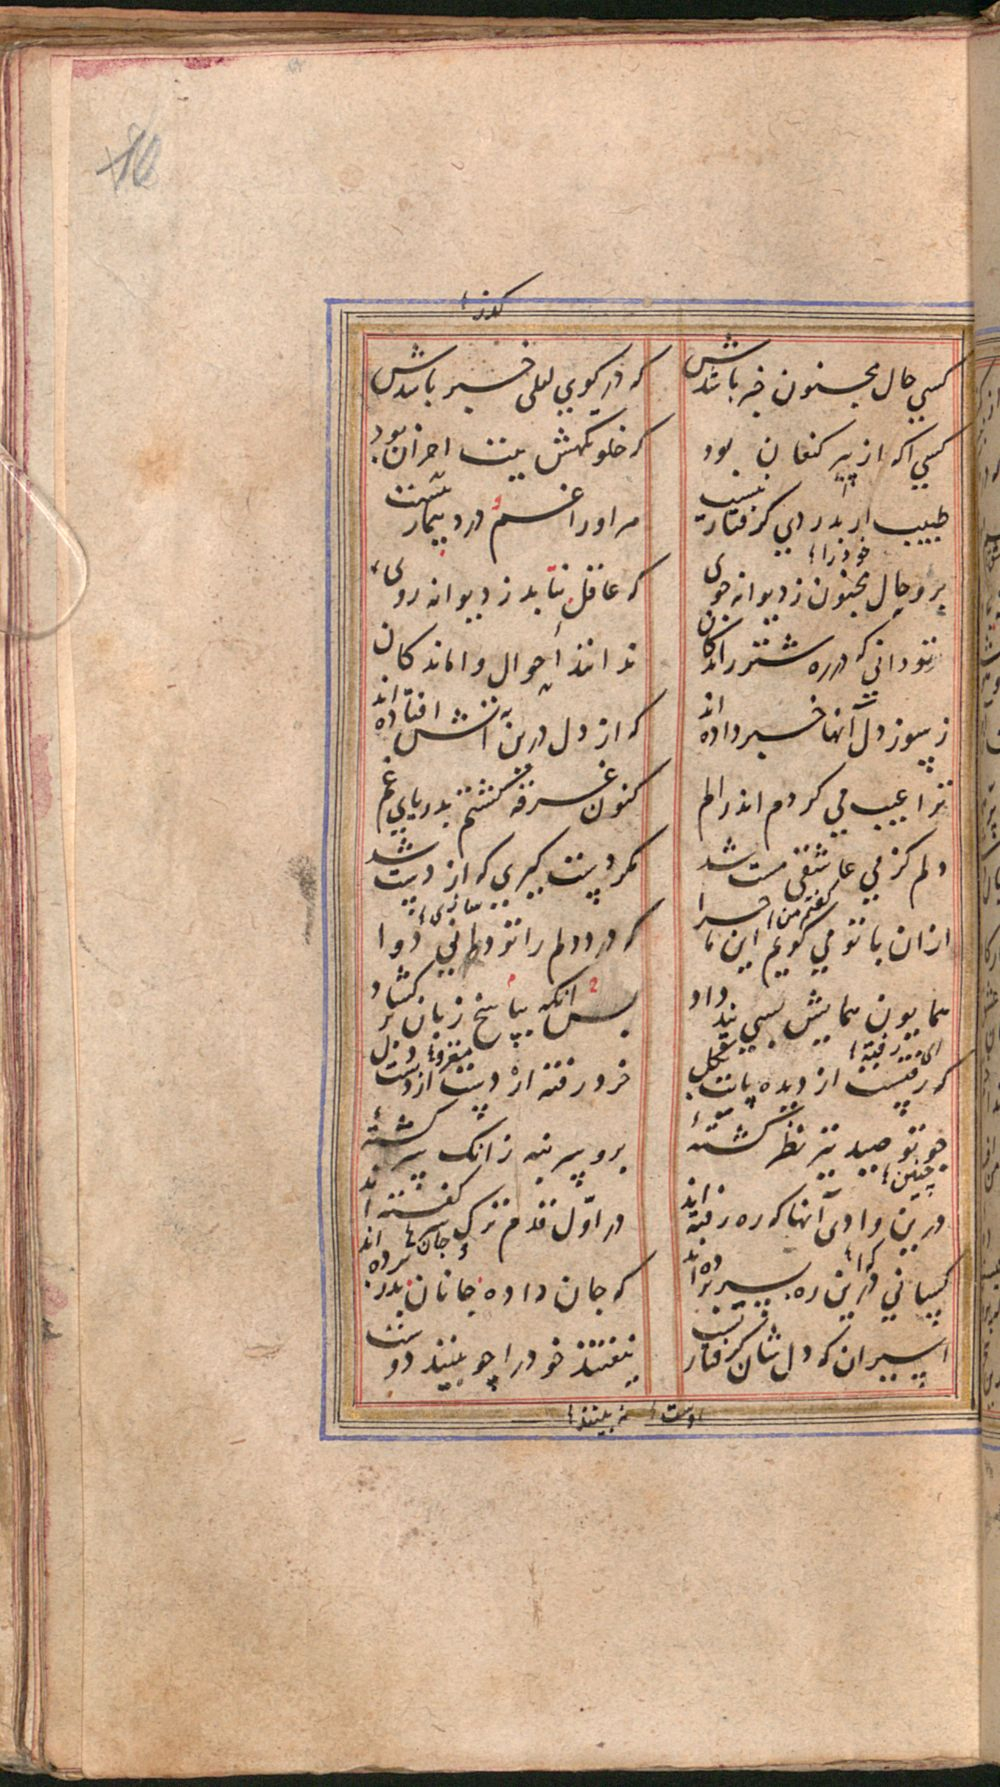 گذر
کسی حال مجنون خبر باشدش
که در کوی لیلی خبر باشدش
کسی اکه از پیر کنعان بود
که خلوتگهش بیت احزان بود
طبیب ار بدردی گرفتار نیست
مر او را غم درد بیمار نیست
خود را
برو حال مجنون ز دیوانه جوی
که عاقل نتابد ز دیوانه روی
تو دانی که در ره شتر راندگان
ندانند احوال واماندگان
ز سوز دل آنها خبر داده اند
که از دل درین آتش افتاده اند
ترا عیب می کردم اندر الم
کنون غرقه گشتم بدریای غم
دلم کز می عاشقی مست شد
مگر دست گیری که از دست شد
گفتم من
ازان با تو می گویم این ماجرا
که درد دلم را تو دانی دوا
همایون همایش بسی پند داد
پس انکه بپاسخ زبان برگشاد
ای رفته
که رفتست از دیده پایت بگل
فرو رفته از دست از دست دل
چو تو صید تیر نظر گشته
برو سر بنه زانک سرگشته
چنین
درین وادی آنها که ره رفته اند
در اول قدم ترک گفته اند
جان
که
کسانی درین ره بسر برده اند
که جان داده جانان بدر برده اند
اسیران که دل شان گرفتار نیست
نیفتند خود را چو بینند دوست
دست نه بینند